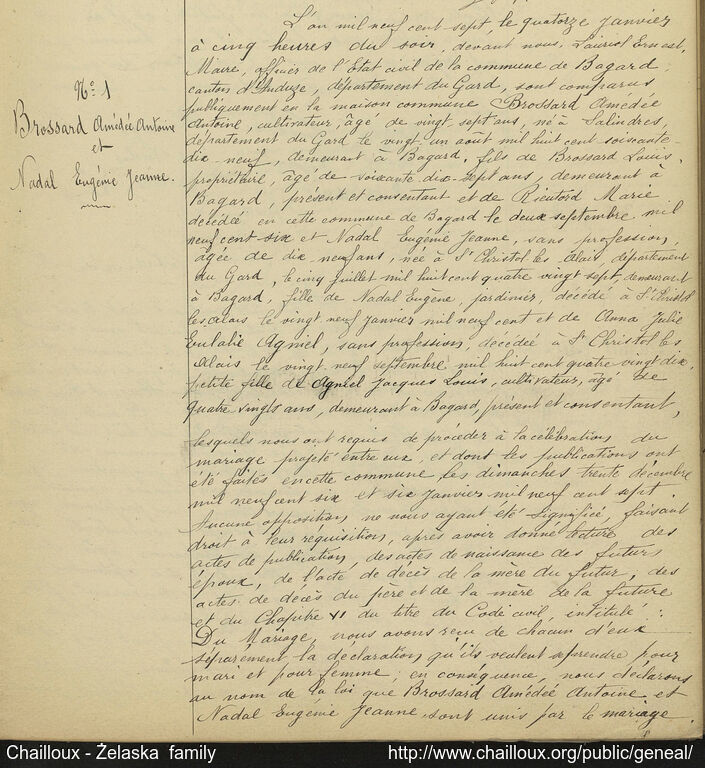 N° 1
Brossard Amédée Antoine
et
Nadal Eugénie Jeanne.
L'an mil neuf cent sept, le quatorze janvier
à cinq heures du soir, devant nous, Lauriol Ernest,
Maire, officier de l'Etat civil de la commune de Bagard,
canton d'Anduze, département du Gard, sont comparus
publiquement en la maison commune Brossard Amédée
Antoine, cultivateur, âgé de vingt sept ans, né à Salindres,
département du Gard le vingt un août mil huit cent soixante-
dix-neuf, demeurant à Bagard, fils de Brossard Louis,
propriétaire, âgé de soixante dix-sept ans, demeurant à
Bagard, présent et consentant et de Rieutord Marie
décédée en cette commune de Bagard le deux septembre mil
neuf cent six et Nadal Eugénie Jeanne, sans profession,
âgée de dix neuf ans, née à St Christol les Alais, département
du Gard, le cinq juillet mil huit cent quatre vingt sept, demeurant
à Bagard, fille de Nadal Eugène, jardinier, décédé à St Christol
les Alais le vingt neuf janvier mil neuf cent et de Anna Julie
Eulalie Agniel, sans profession, décédée à St Christol les
Alais le vingt neuf septembre mil huit cent quatre vingt dix,
petite fille de Agniel Jacques Louis, cultivateur, âgé de
quatre vingts ans, demeurant à Bagard, présent et consentant,
lesquels nous ont requis de procéder à la célébration du
mariage projeté entre eux, et dont les publications ont
été faites en cette commune les dimanches trente décembre
mil neuf cent six et six janvier mil neuf cent sept.
Aucune opposition ne nous ayant été signifiée, faisant
droit à leur réquisition, après avoir donné lecture des
actes de publication, des actes de naissance des futurs
époux, de l'acte de décès de la mère du futur, des
actes de décès du père et de la mère de la future
et du Chapitre VI du titre du Code civil, intitulé :
Du Mariage, nous avons reçu de chacun d'eux
séparément la déclaration qu'ils veulent se prendre pour
mari et pour femme ; en conséquence, nous déclarons
au nom de la loi que Brossard Amédée Antoine et
Nadal Eugénie Jeanne sont unis par le mariage.
Chailloux - Želaska family
http://www.chailloux.org/public/geneal/